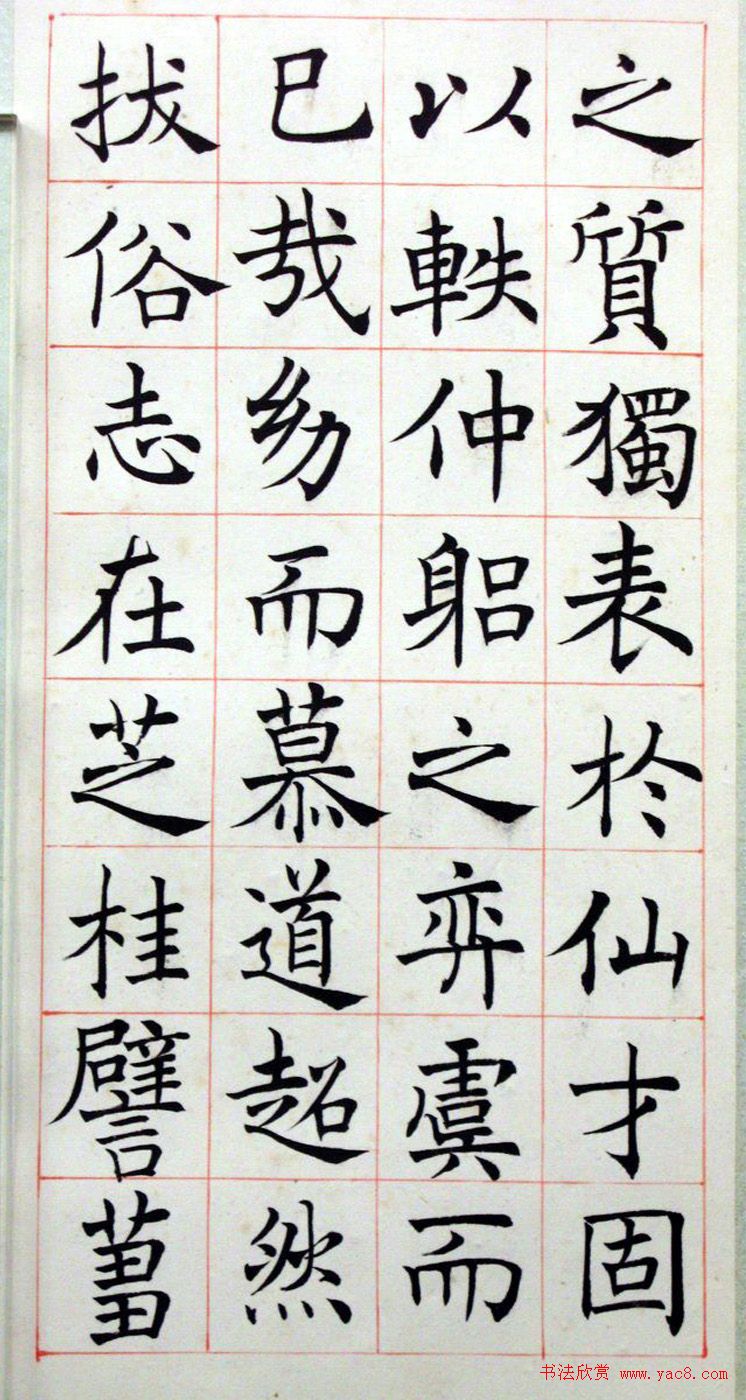 之質獨表於仙才固
以軼仲躳之弈虞而
已哉幼而慕道超然
拔俗志在芝桂譬薑
书法欣赏 www.yac8.com